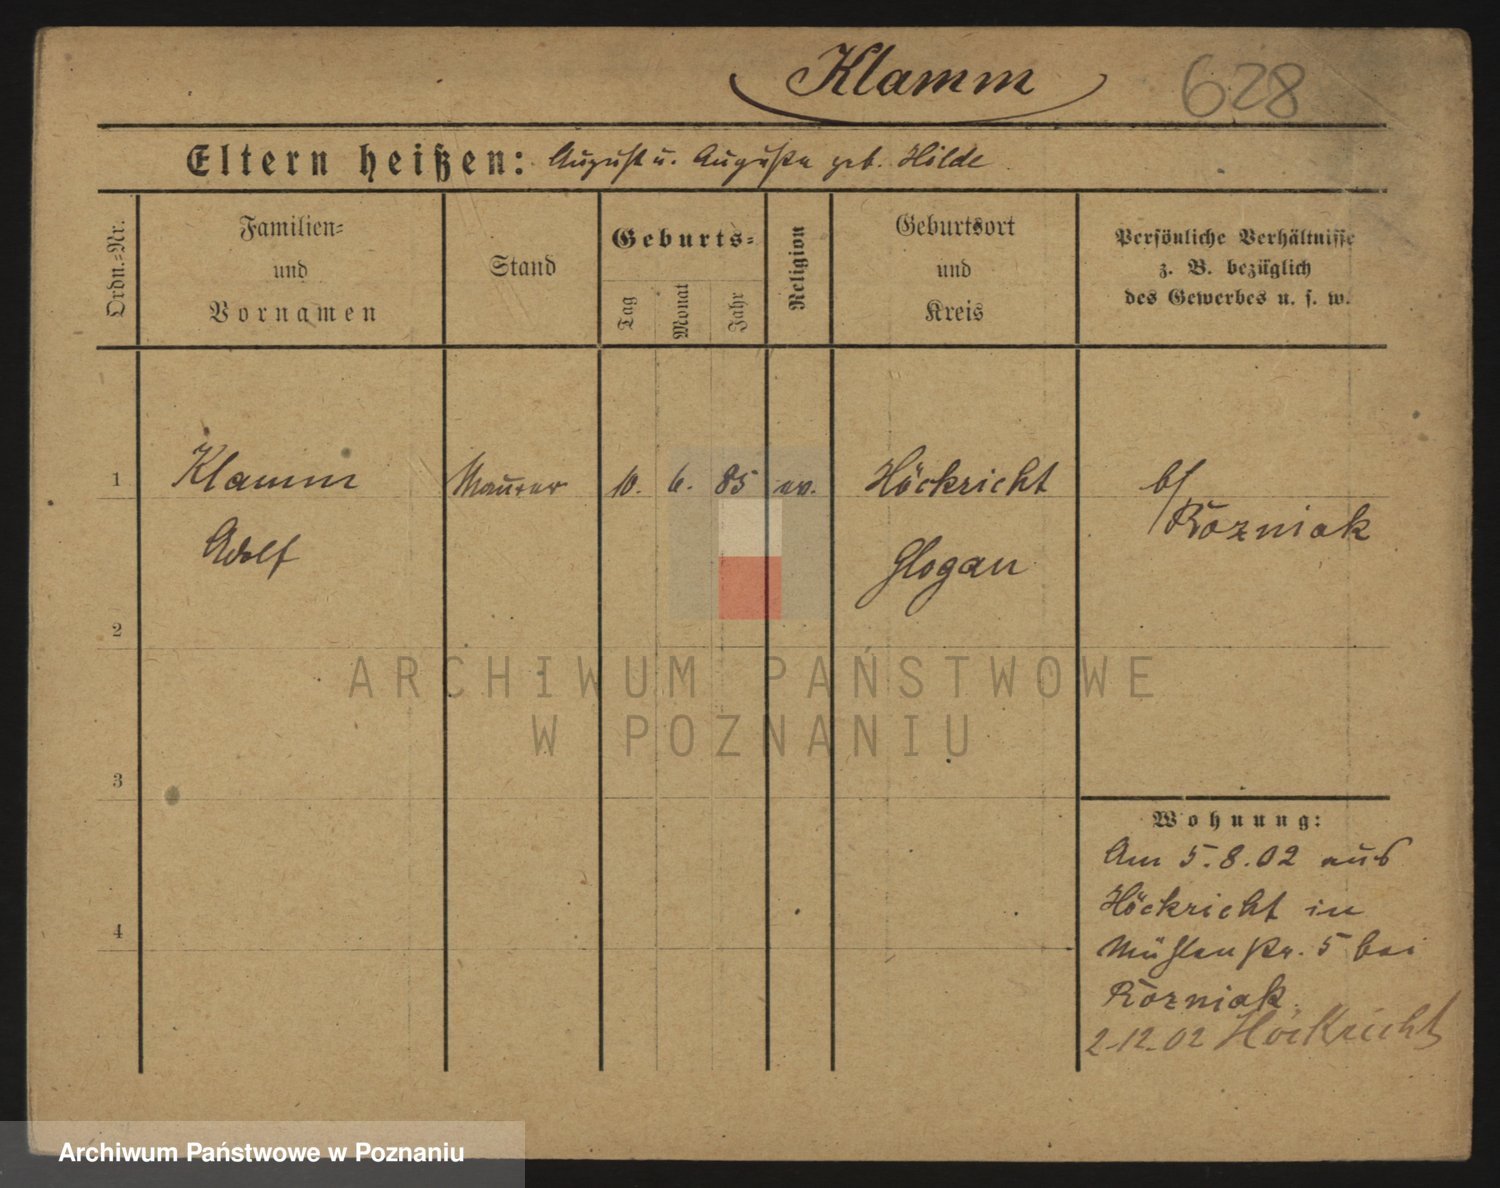 Klamm
628
Eltern heißen: August u. Auguste geb. Hilde
Ordn.-Nr.
Familien-
und
Vornamen
Stand
Geburts-
Tag
Monat
Jahr
Religion
Geburtsort
und
Kreis
Persönliche Verhältnisse
z. B. bezüglich
des Gewerbes u. s. w.
1
Klamm
Adolf
Maurer
10. 6. 85
ev.
Höckricht
Glogau
b/
Rozniak
2
3
4
Wohnung:
Am 5.8.02 aus
Höckricht in
Mühlenstr. 5 bei
Rozniak.
2.12.02 Höckricht
ARCHIWUM PAŃSTWOWE
W POZNANIU
Archiwum Państwowe w Poznaniu